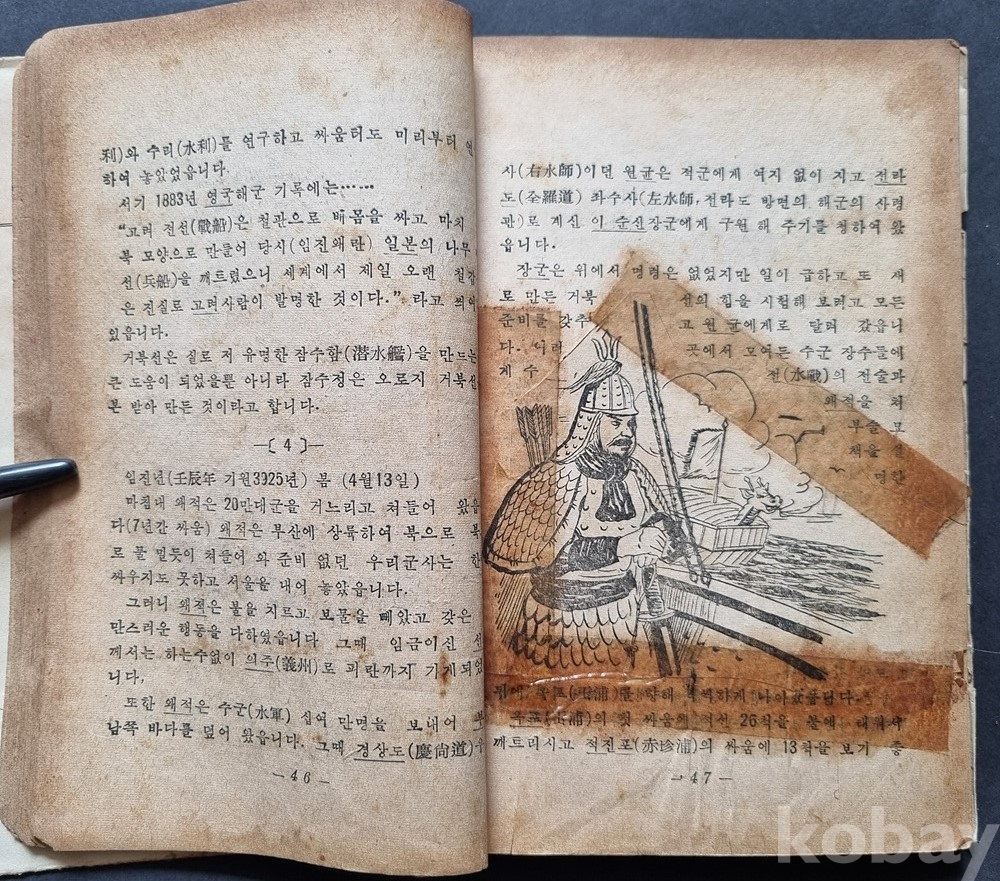 利)와 수리(水利)를 연구하고 싸움터도 미리부터 연
하여 놓았었읍니다.
서기 1883년 영국해군 기록에는……
“고려 전선(戰船)은 철판으로 배몸을 싸고 마치
북 모양으로 만들어 당시(임진왜란) 일본의 나무
선(兵船)을 깨트렸으니 세계에서 제일 오랜 철갑
은 진실로 고려사람이 발명한 것이다.” 라고 씌어
있읍니다.
거북선은 실로 저 유명한 잠수함(潜水艦)을 만드는
큰 도움이 되었을뿐 아니라 잠수정은 오로지 거북선
본 받아 만든 것이라고 합니다.
—〔4〕—
임진년(壬辰年 기원3925년) 봄 (4월13일)
마침내 왜적은 20만대군을 거느리고 처들어 왔읍
다(7년간 싸움) 왜적은 부산에 상륙하여 북으로 북
로 물 밀듯이 처들어 와 준비 없던 우리군사는 한
싸우지도 못하고 서울을 내어 놓았읍니다.
그러니 왜적은 불을 지르고 보물을 빼았고 갖은
만스러운 행동을 다하였읍니다 그때 임금이신 선
께서는 하는수없이 의주(義州)로 피란까지 가게되었
니다,
또한 왜적은 수군(水軍) 십여 만명을 보내어
남쪽 바다를 덮어 왔읍니다. 그때 경상도(慶尙道)우
—46—
사(右水師)이던 원균은 적군에게 여지 없이 지고 전라
도(全羅道) 좌수사(左水師, 전라도 방면의 해군의 사령
관)로 계신 이 순신장군에게 구원 해 주기를 청하여 왔
읍니다.
장군은 위에서 명령은 없었지만 일이 급하고 또 새
로 만든 거북 선의 힘을 시험해 보려고 모든
준비를 갖추 고 원 균에게로 달려 갔읍니
다. 이러 곳에서 모여든 수군 장수들에
게 수 전(水戰)의 전술과
왜적을 처
부술 모
책을 설
명한
향해 나아갔읍니다.
의 첫 싸움에 적선 26척을 불에 태워서
깨트리시고 적진포(赤珍浦)의 싸움에 13척을 보기 좋
—47—
kobay